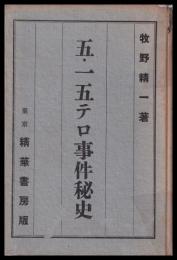 牧野精一著
五・一五テロ事件秘史
東京 精華書房版